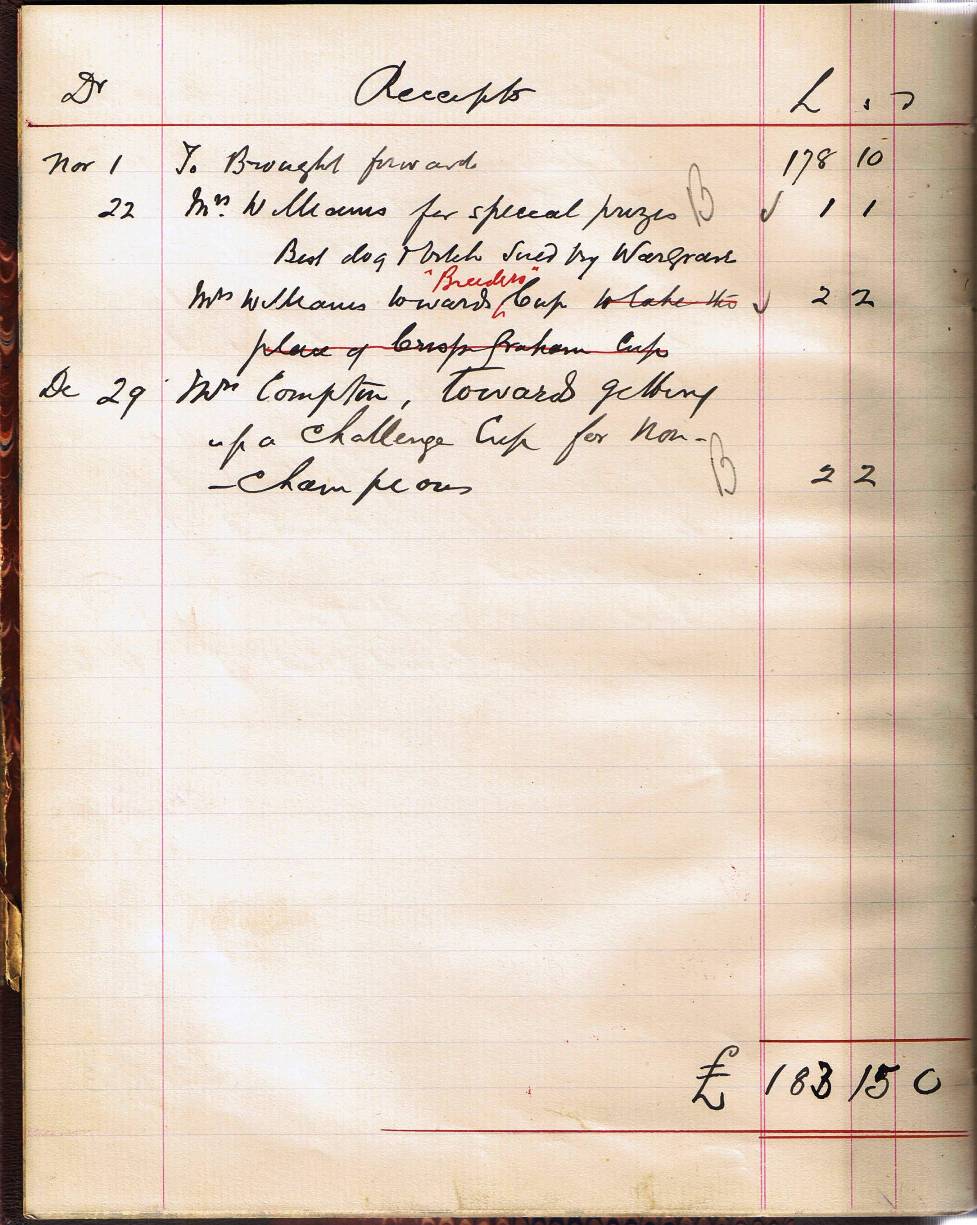 Dr Receipts £ s D
Nov 1 To Brought forward 178 10
22 Mrs. Williams for special prizes B ✓ 1 1
Best dog & bitch sired by Wargrave
"Breeders"
Mrs Williams towards Cup to take the ✓ 2 2
place of Crisp Graham Cup
De 29 Mrs Compton, towards getting
up a Challenge Cup for Non-
-Champions B 2 2
£ 183 15 0